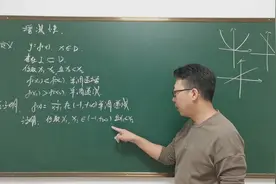 增减性
定义 y=f(x) x∈D
I⊂D.
任取 x₁, x₂ 且 x₁<x₂
f(x₁)<f(x₂) 单调递增
f(x₁)>f(x₂) 单调递减
f(x)= 在(-1,+∞)单调递减
证明: 任取 x₁, x₂∈(-1,+∞) 且x₁<x₂